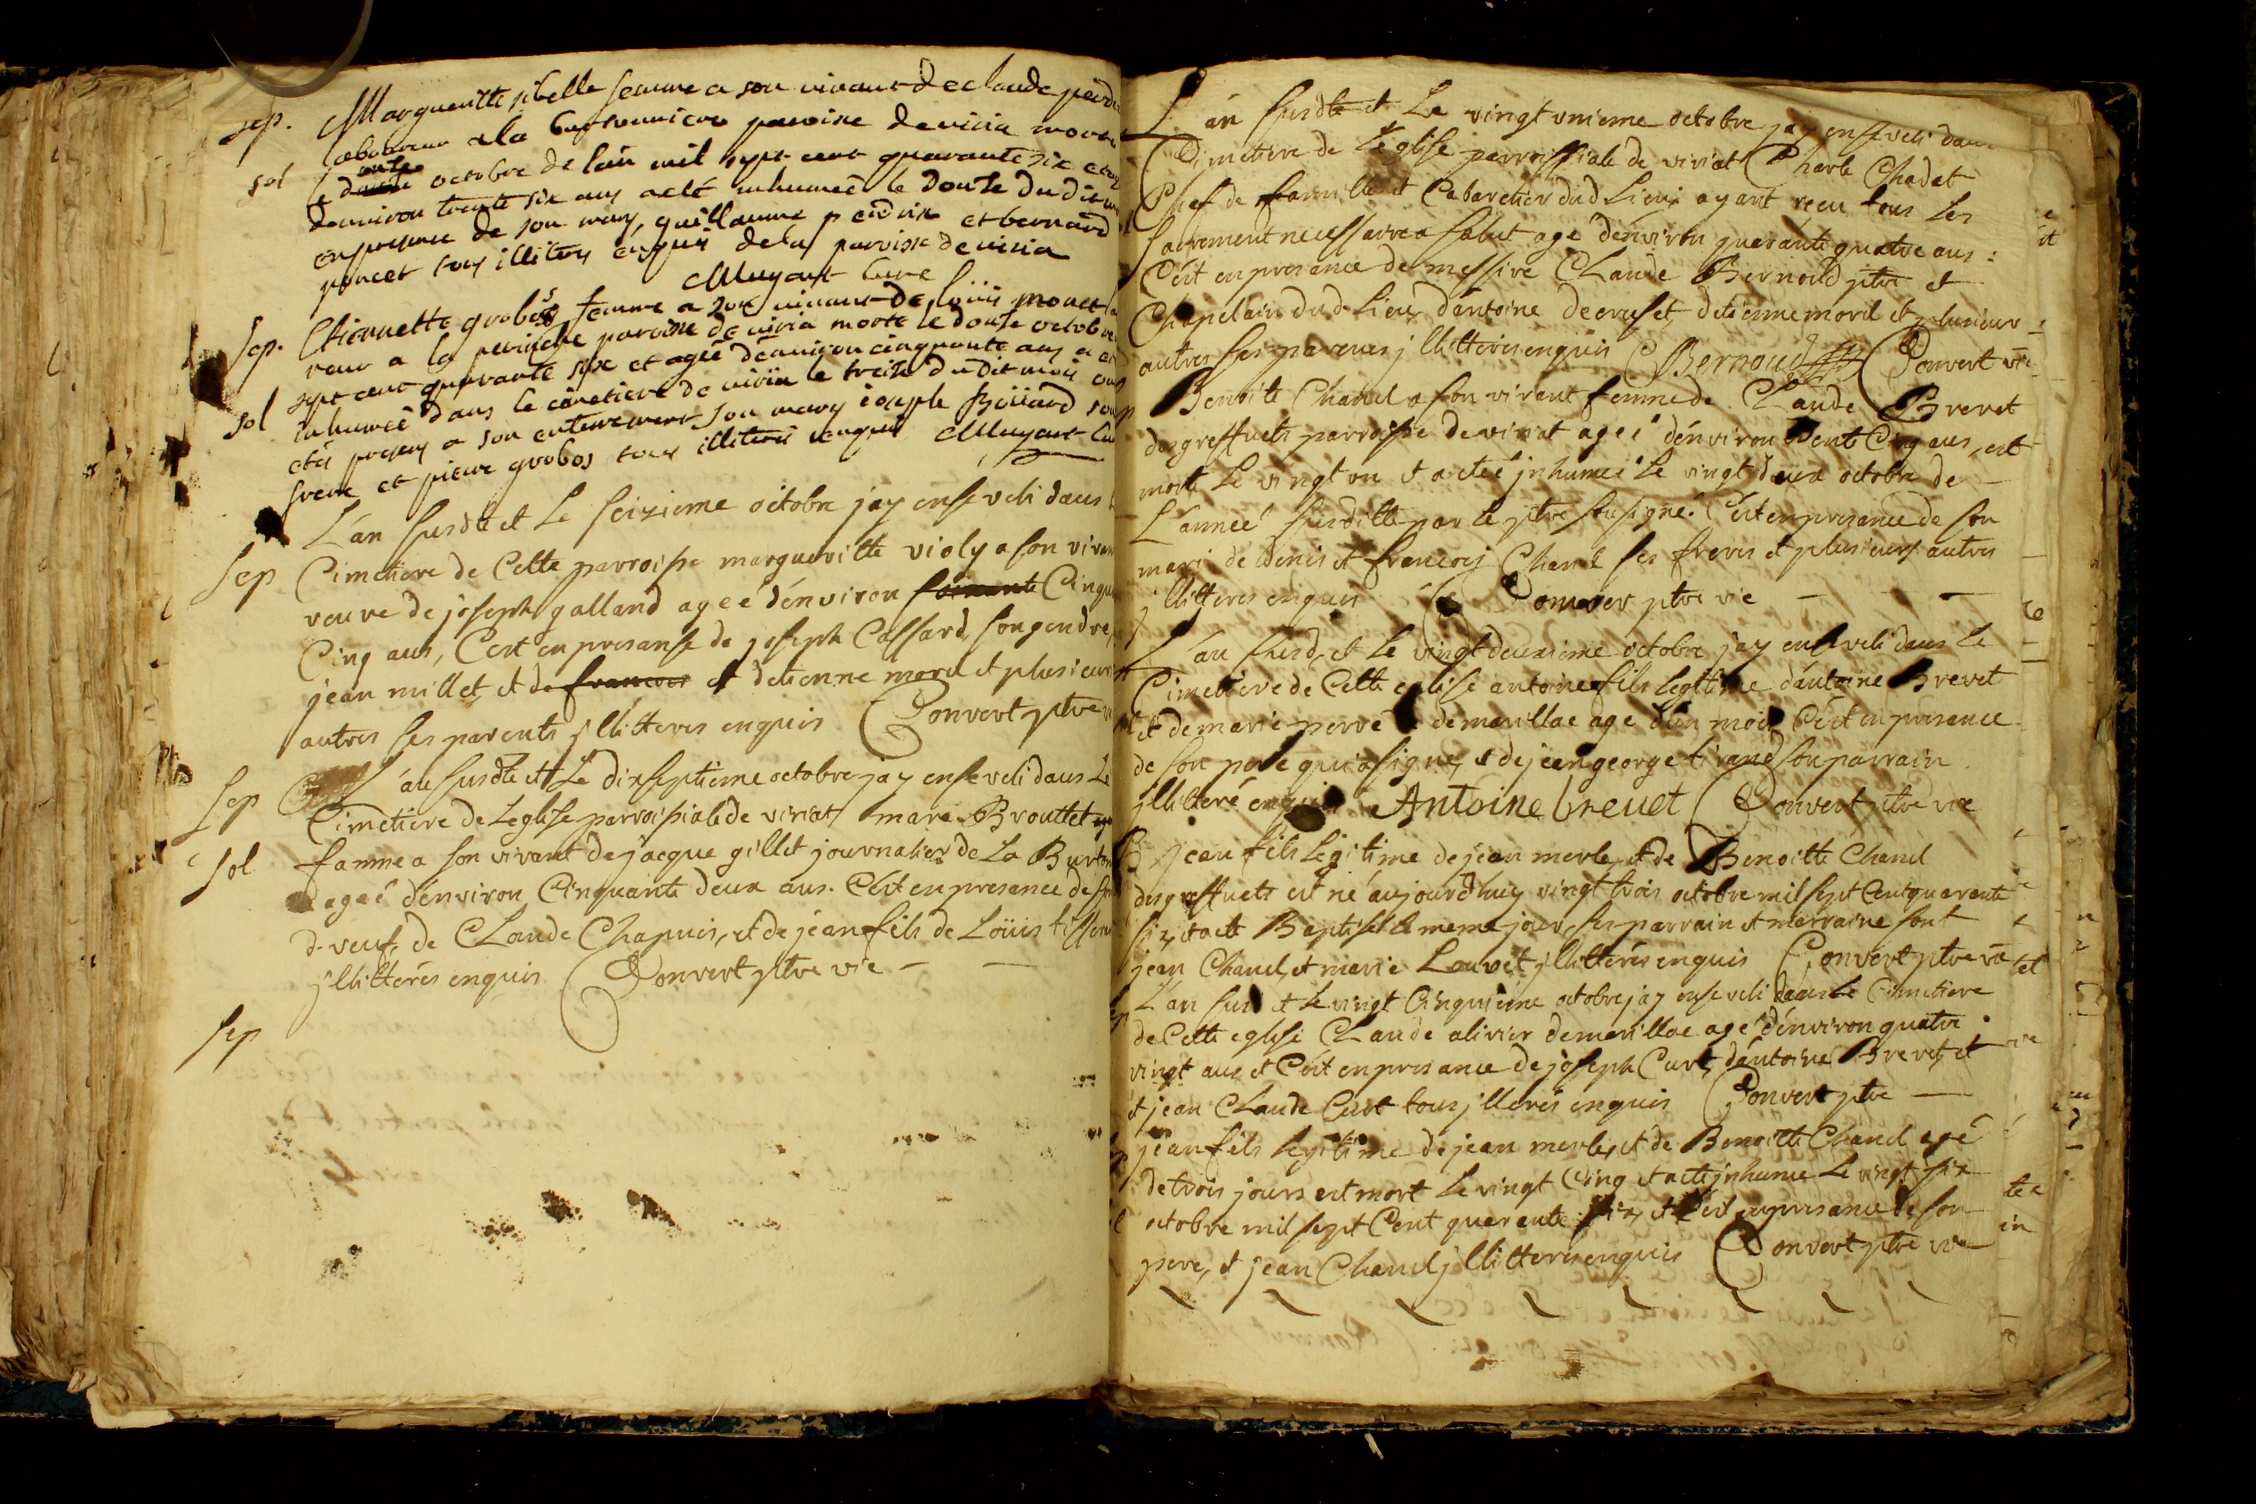 sep.
Margueritte sibelle femme a son vivant de claude perd
sol
laboureur a la paroisse de viria morte
le onze octobre de l'an mil sept cent quarante six et
d'environ trente six ans a eté inhumeé le douze du dit
en presence de son mary, guillaume perdrix et bernard
poncet tous illiterés enquis de la paroisse de viria
Muyart Curé
sep.
Etiennette grobos femme a son vivant de loüis monet
a la paroisse de viria morte le douse octobre
sol
sept cent quarante six et ageé d'environ cinquante ans a
inhumeé dans le cimetiere de viria le treise du dit mois
etés presens a son enterrement son mary joseph son
frere et pierre grobos tous illiterés enquis Muyart
L'an susdte et Le seizieme octobre j'ay enseveli dans
sep
Cimetiere de Cette parroisse margueritte violy a son vivant
veuve de joseph galland ageé d'environ Cinqu
Cinq ans, C'ert en presanse de joseph Cassard, son gendre,
jean millet, et de francois et d'etienne morel et plusieurs
autres ses parents jllitteres enquis Convert ptre
sep
L'an susdte et Le dix septieme octobre j'ay enseveli dans Le
Cimetiere de Leglise parroissiale de viriat marie Brouttet
sol
famme a son vivant de jacque gillet journalier de La
ageé d'environ Cinquante deux ans. C'ert en presance de
d-veuf de Claude Chapuis, et de jean fils de Loüis
jllitterés enquis Convert ptre vic
sep
L'an susdte et Le vingt unieme octobre j'ay enseveli dans
Cimetiere de L'eglise parroissiale de viriat Charle Chadat
Chef de famille et Cabaretier dud Lieu, ayant recu tous Les
sacrement necessaire a salut agé d'environ quarante quatre ans:
C'ert en presance de messire Claude Bernoud ptre et
Chapelain dud Lieu d'antoine decruset, d'etienne morel et plusieur
autres ses parents jllitteres enquis Bernoud Convert vic
Benoite Chanel a son vivant femme de Claude Brevet
des greffuets parroisse de viriat ageé d'environ trente Cinq ans, ert
morte Le vingt un et a eteé jnhumeé Le vingt deux octobre de
L'anneé susditte par le ptre sousigné. C'ert en presance de son
mari de denis et francois Chanel ses freres et plusieurs autres
jllitteres enquis Convert ptre vic
L'an susd, et Le vingt deuxieme octobre j'ay enseveli dans Le
Cimetiere de Cette eglise antoine fils legitime d'antoine Brevet
et de marie perret de marillac age d'un mois C'ert en presance
de son pere qui a signé, et de jean george tirand son parrain
jllitteré enquis Antoine breuet Convert ptre vic
jean fils Legitime de jean merle, et de Benoitte Chanel
des greffuets ert né aujourd'huy vingt trois octobre mil sept Cent quarante
six, et a eté Baptisé le meme jour, ses parrain et marraine sont
jean Chanel, et marie Louvet jllitterés enquis Convert ptre vic
L'an susd et Le vingt Cinquieme octobre j'ay enseveli dans Le Cimetiere
de Cette eglise Claude alivier de marillac agé d'environ quatre
vingt ans et C'ert en presance de joseph Curt, d'antoine Brevet, et
et jean Claude Curt tous jlleres enquis Convert ptre
jean fils legitime de jean merle, et de Benoitte Chanel agé
de trois jours ert mort Le vingt Cinq et a eté jnhumé Le vingt six
octobre mil sept Cent quarante six, et C'ert en presance de son
pere, et jean Chanel jllitteres enquis Convert ptre vic